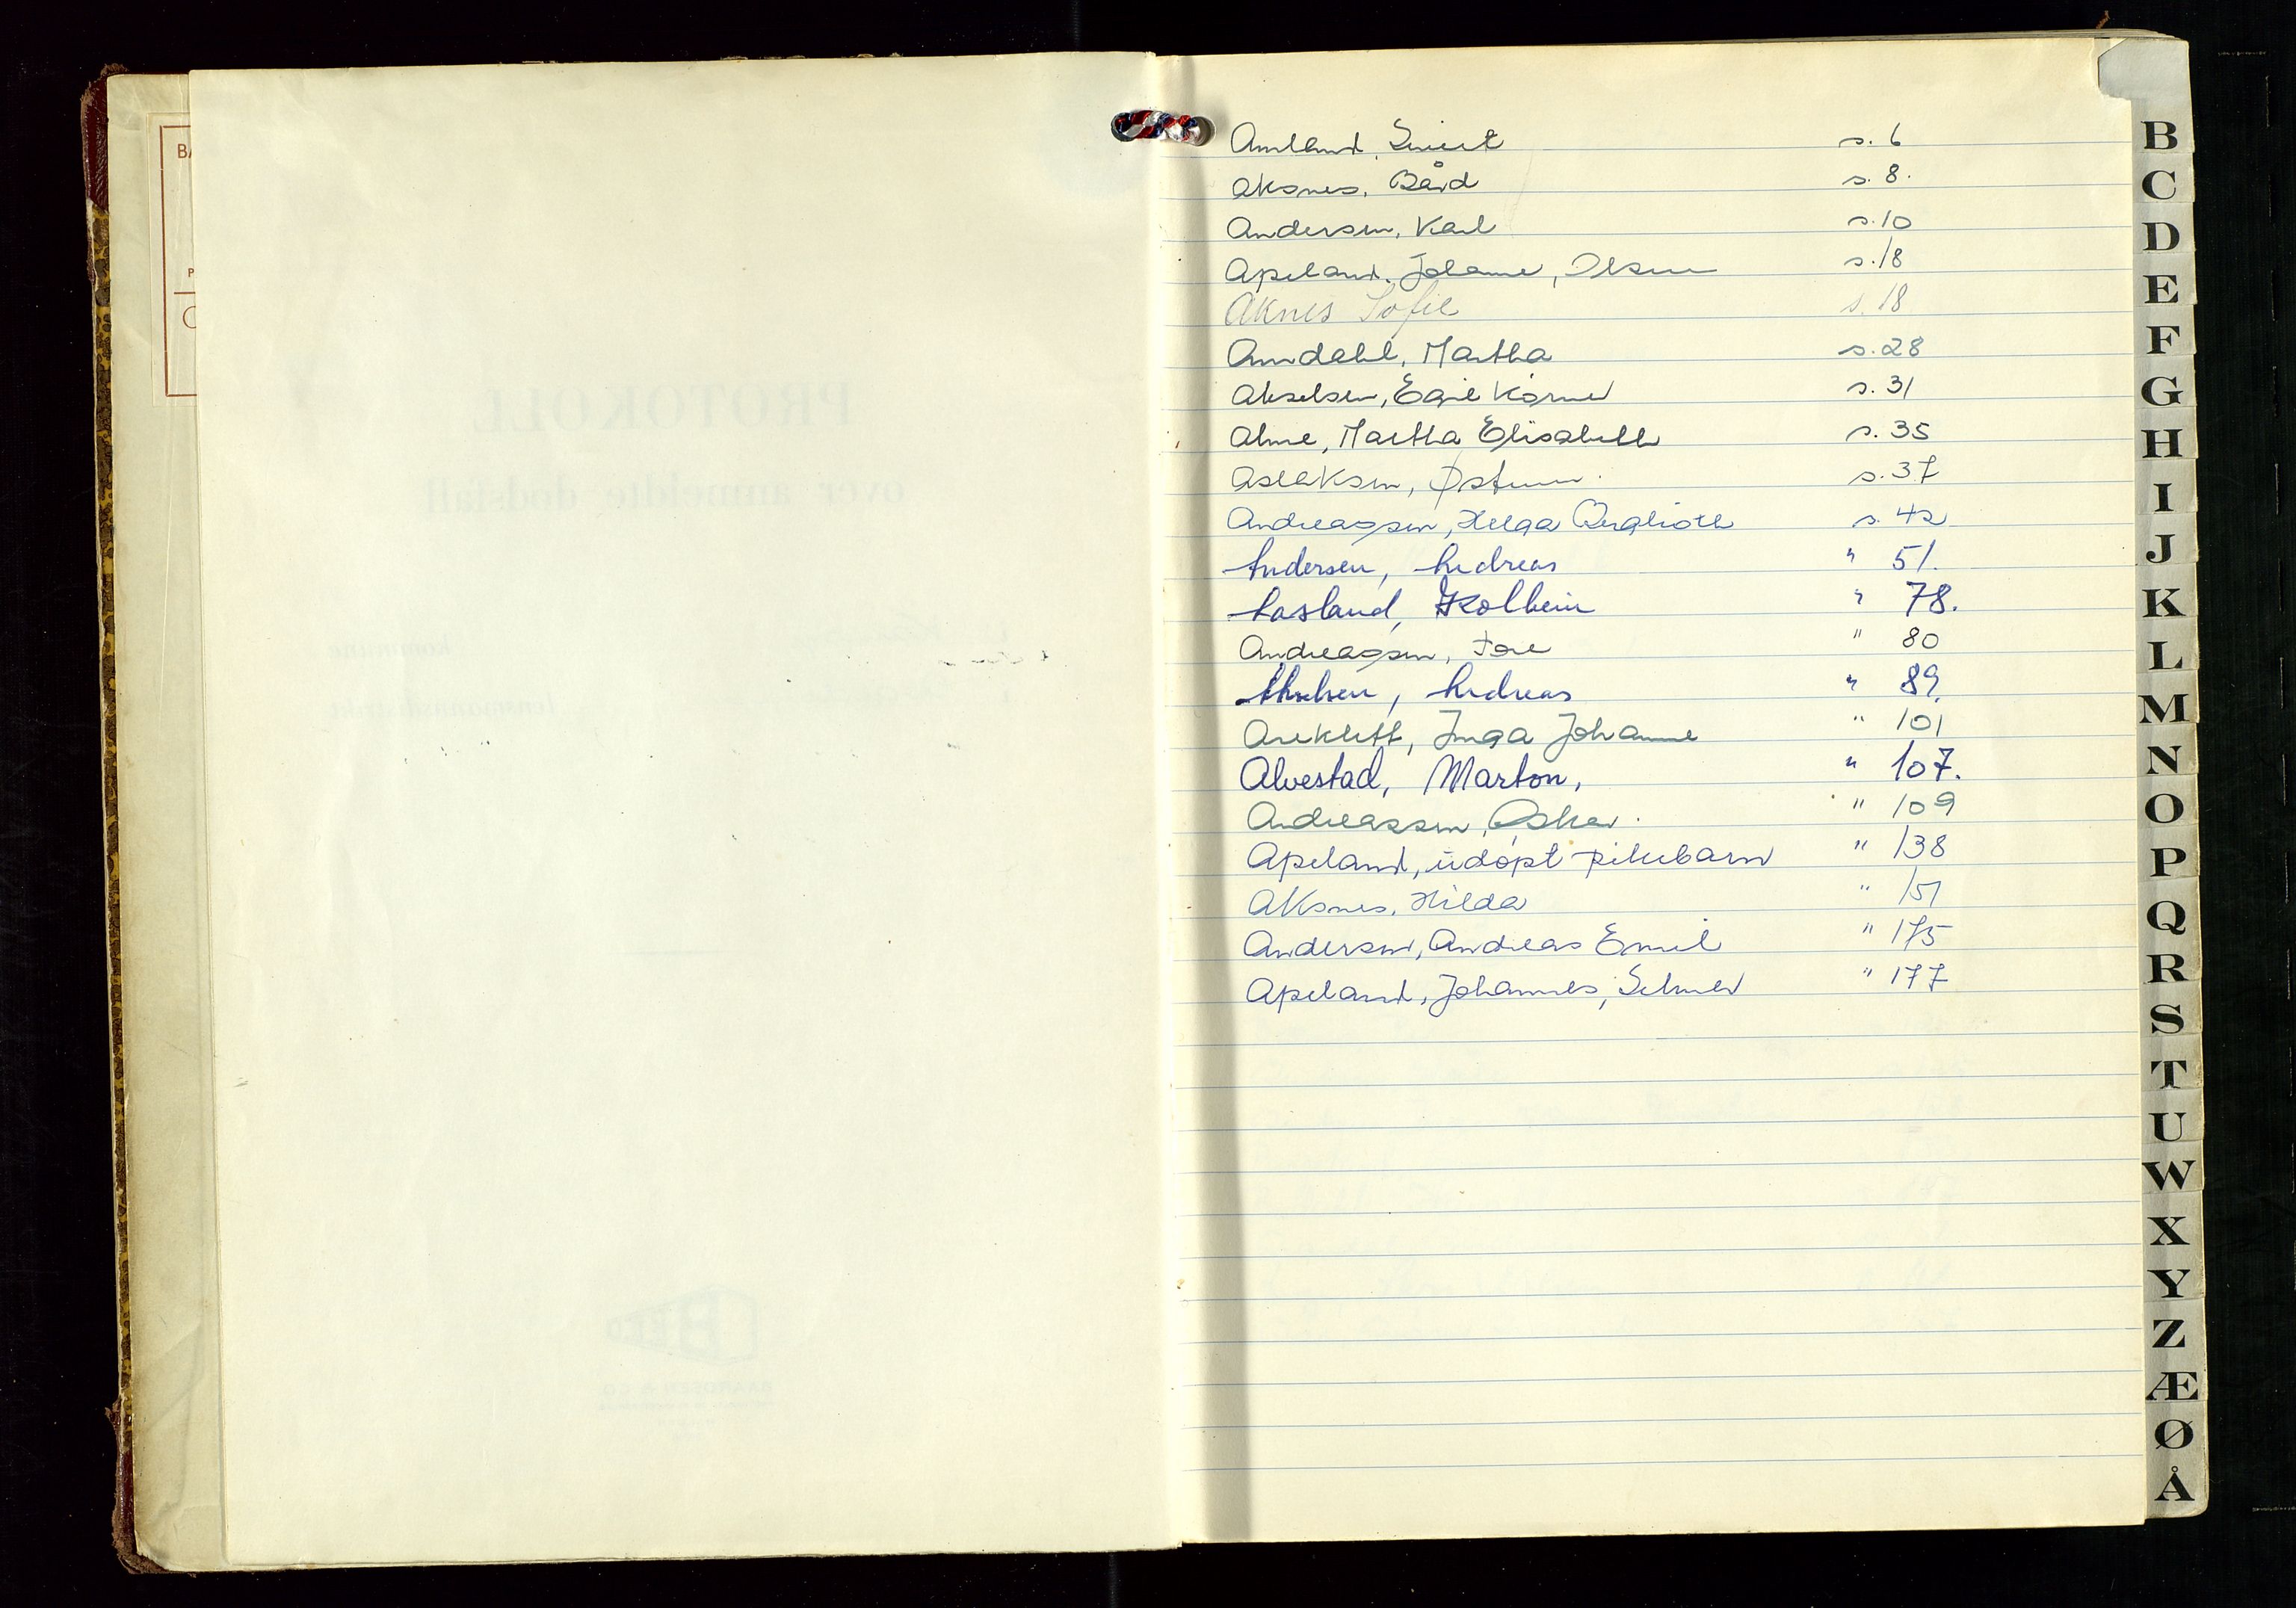 Amland, Sivert s. 6
Aksnes, Bård s. 8.
Andersen, Karl s. 10
Apeland, Johanne, Olsen s. 18
Aknes Sofie s. 18
Amdahl, Martha s. 28
Akselsen, Egil Korner s. 31
Alme, Martha Elisabeth s. 35
Aslaksen, Østen s. 37
Andreassen, Helga Bergliot s. 42
Andersen, Andreas " 51.
Aasland, Kolbein " 78.
Andreassen, Tore " 80
Andreas " 89.
Areklett, Inga Johanne " 101
Alvestad, Marton, " 107.
Andreassen, Oskar. " 109
Apeland, udøpt pikebarn " 138
Aksnes, Hilda " 151
Andersen, Andreas Emil " 175
Apeland, Johannes, Selmer " 177
B
C
D
E
F
G
H
I
J
K
L
M
N
O
P
Q
R
S
T
U
W
X
Y
Z
Æ
Ø
Å
PROTOKOLL
over anmeldte dødsfall
kommune
lensmannsdistrikt